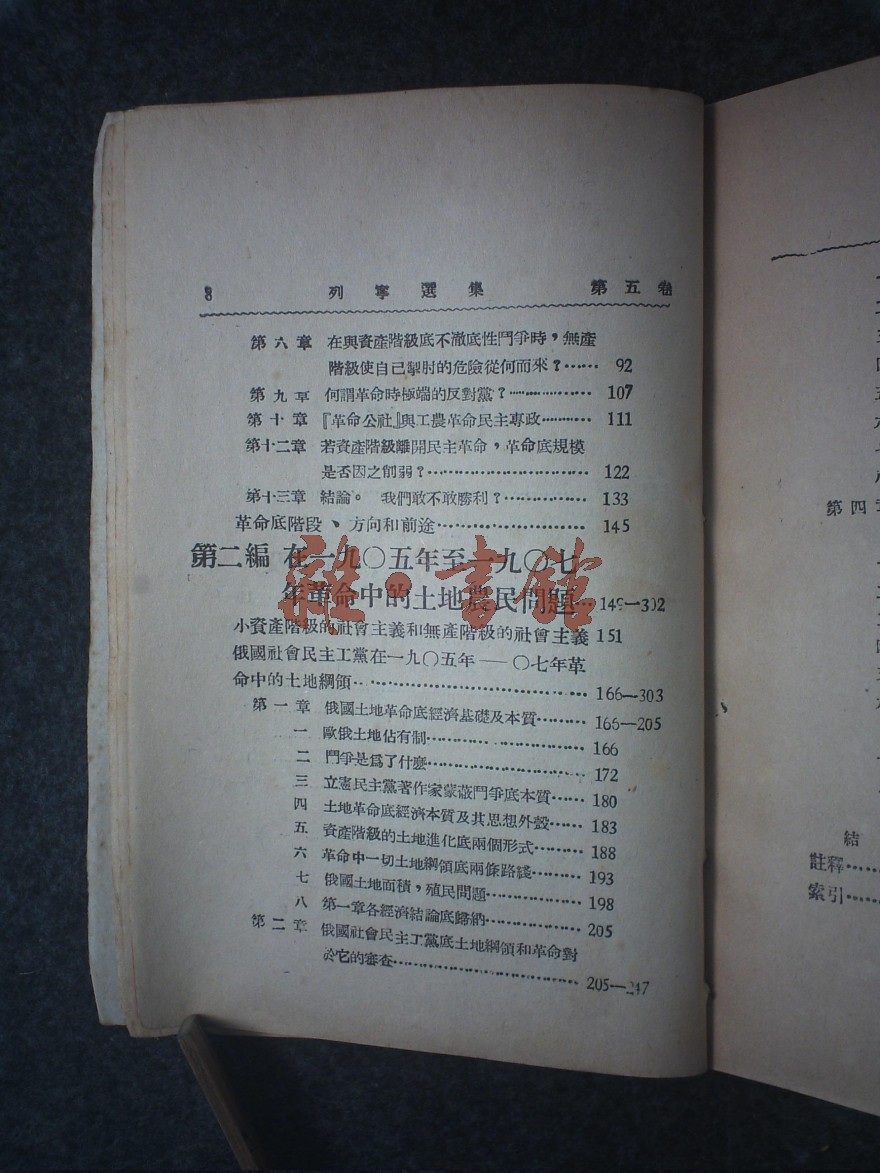 8 列寧選集 第五卷
第六章 在與資產階級底不澈底性鬥爭時，無產
階級使自己掣肘的危險從何而來？…… 92
第九章 何謂革命時極端的反對黨？…………… 107
第十章 『革命公社』與工農革命民主專政………… 111
第十二章 若資產階級離開民主革命，革命底規模
是否因之削弱？………………………… 122
第十三章 結論。 我們敢不敢勝利？…………… 133
革命底階段、方向和前途………………………… 145
第二編 在一九〇五年至一九〇七
年革命中的土地農民問題…149—302
小資產階級的社會主義和無產階級的社會主義 151
俄國社會民主工黨在一九〇五年——〇七年革
命中的土地綱領…………………………………… 166—303
第一章 俄國土地革命底經濟基礎及本質……… 166—205
一 歐俄土地佔有制…………………… 166
二 鬥爭是爲了什麼…………………… 172
三 立憲民主黨著作家蒙蔽鬥爭底本質…… 180
四 土地革命底經濟本質及其思想外殼…… 183
五 資產階級的土地進化底兩個形式……… 188
六 革命中一切土地綱領底兩條路綫……… 193
七 俄國土地面積，殖民問題……………… 198
八 第一章各經濟結論底歸納……………… 205
第二章 俄國社會民主工黨底土地綱領和革命對
於它的審查………………………………… 205—247
第四
結
註釋……
索引……
書館